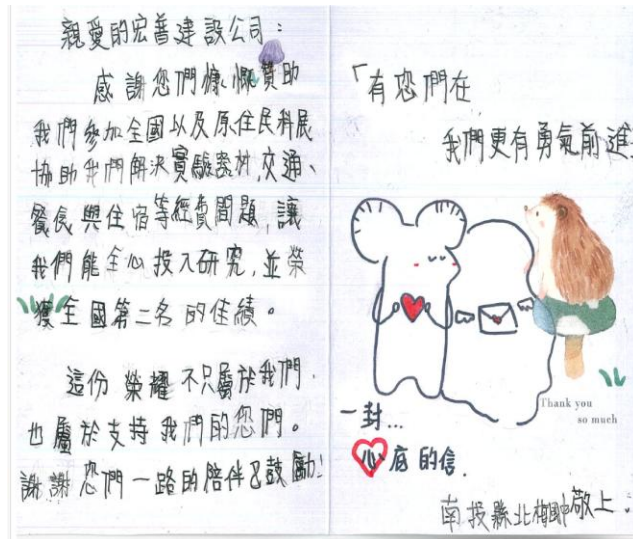 親愛的宏普建設公司：
感謝您們慷慨贊助
我們參加全國以及原住民科展
協助我們解決實驗器材、交通、
餐食與住宿等經費問題，讓
我們能全心投入研究，並榮
獲全國第二名的佳績。
這份榮耀不只屬於我們，
也屬於支持我們的您們。
謝謝您們一路的陪伴及鼓勵！
「有您們在
我們更有勇氣前進
Thank you
so much
一封...
心底的信.
南投縣北梅國中敬上